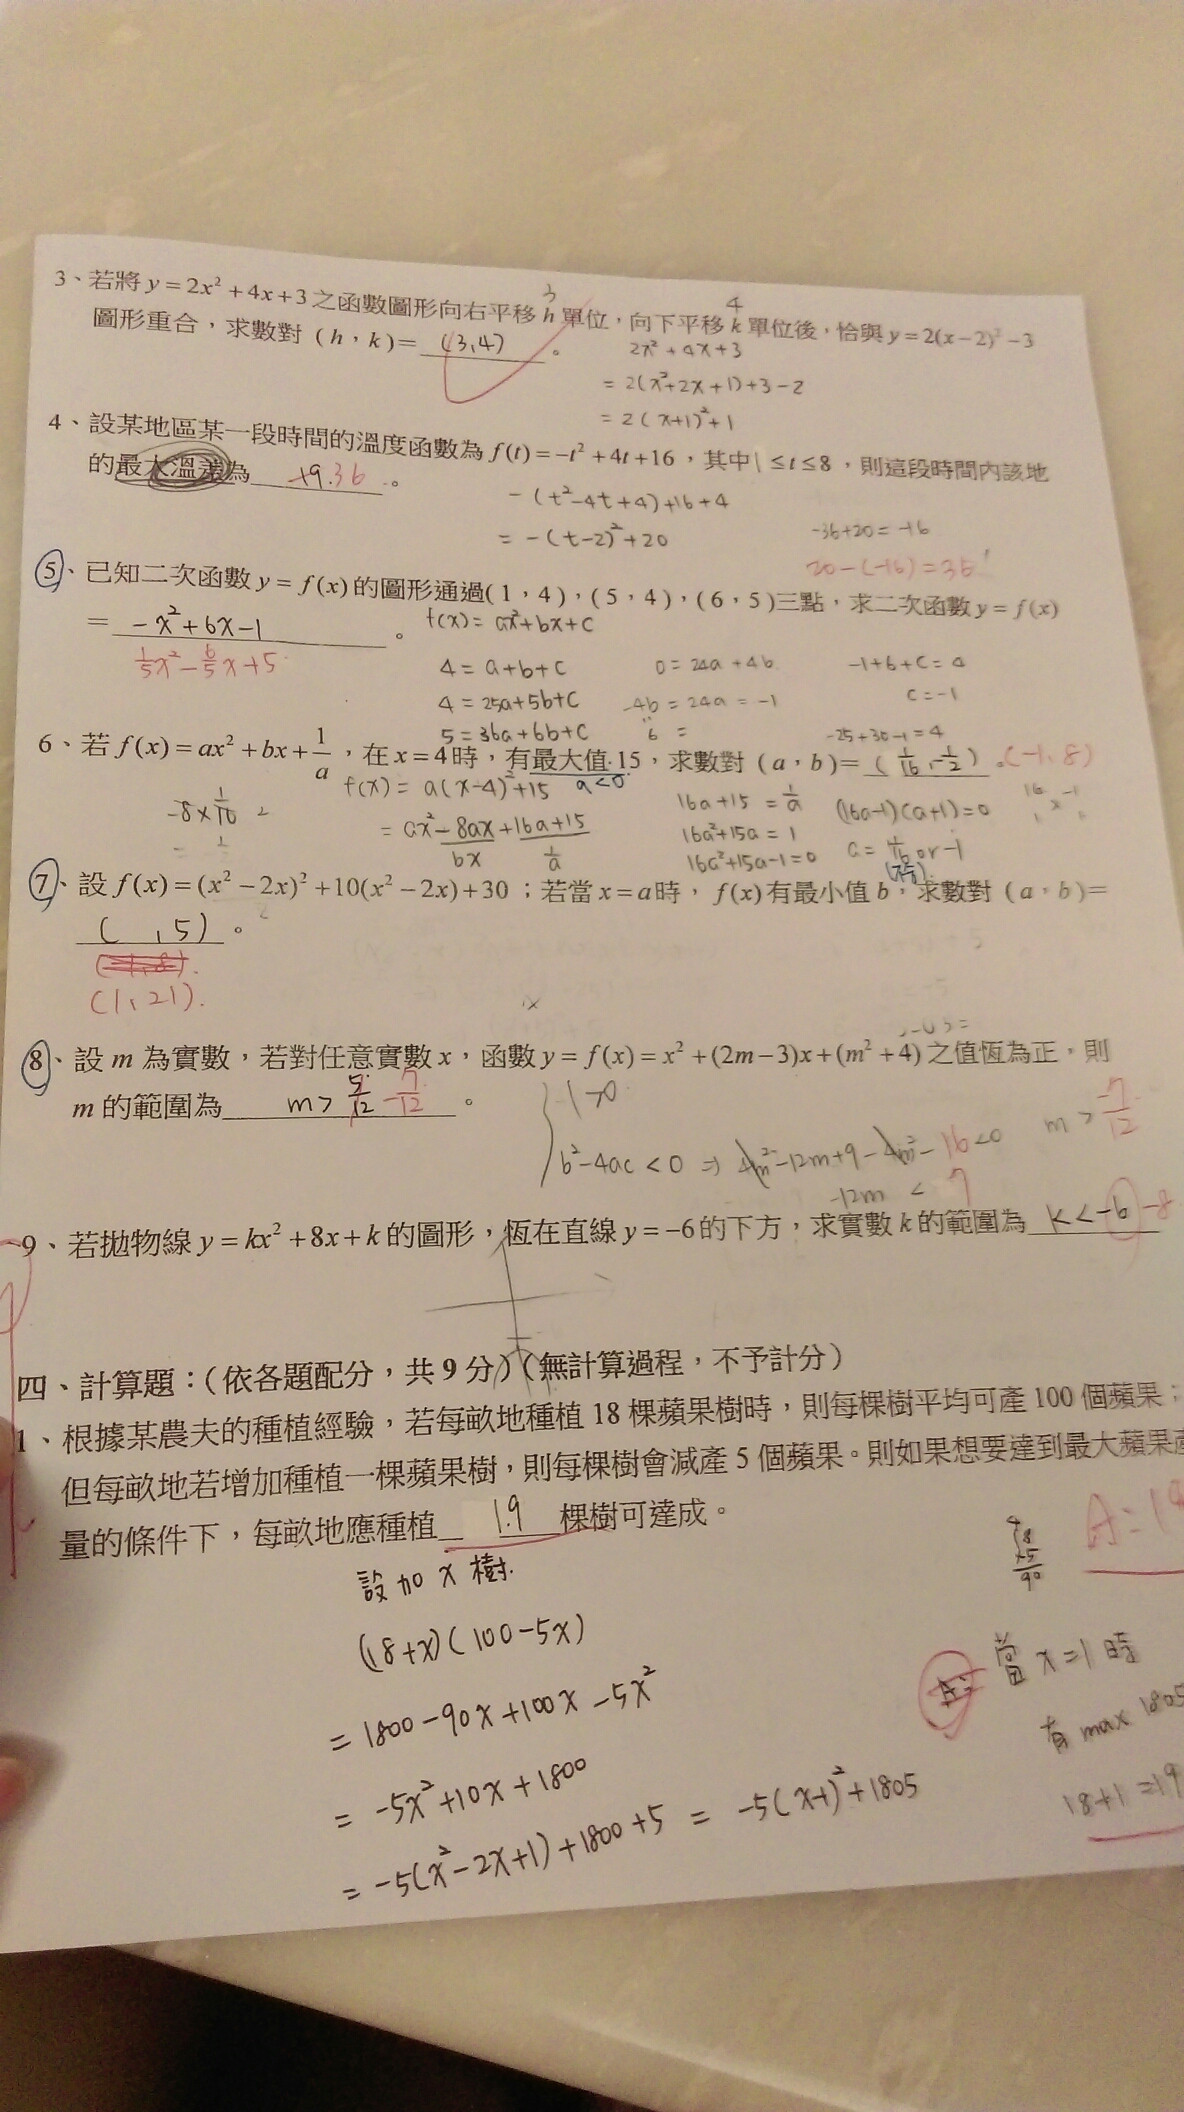 3、若將 y = 2x² + 4x + 3 之函數圖形向右平移 h 單位，向下平移 k 單位後，恰與 y = 2(x − 2)² − 3
3
4
圖形重合，求數對（h，k）= (3,4) 。
2x² + 4x + 3
= 2(x²+2x+1)+3-2
= 2(x+1)²+1
4、設某地區某一段時間的溫度函數為 f(t) = −t² + 4t + 16，其中 1 ≤ t ≤ 8，則這段時間內該地
的最大溫差為 36 。
-(t²-4t+4)+16+4
= -(t-2)²+20
-36+20 = -16
20-(-16)=36
⑤、已知二次函數 y = f(x) 的圖形通過(1，4)，(5，4)，(6，5)三點，求二次函數 y = f(x)
= -x²+6x-1 。
f(x) = ax²+bx+c
1/5x² - 6/5x + 5
4 = a+b+c
0 = 24a + 4b
-1+6+c = 4
4 = 25a+5b+c
-4b = 24a = -1
c = -1
5 = 36a+6b+c
-25+30-1=4
6、若 f(x) = ax² + bx + 1/a，在 x = 4 時，有最大值 15，求數對（a，b）= (1/16, -1/2) 。(-1, 8)
f(x) = a(x-4)²+15
a<0
= ax²-8ax+16a+15
bx
1/a
16a+15 = 1/a
16a²+15a = 1
16a²+15a-1=0
(16a-1)(a+1)=0
a = 1/16 or -1
⑦、設 f(x) = (x² − 2x)² + 10(x² − 2x) + 30；若當 x = a 時，f(x) 有最小值 b，求數對（a，b）=
( ,5) 。
(1, 21).
⑧、設 m 為實數，若對任意實數 x，函數 y = f(x) = x² + (2m − 3)x + (m² + 4) 之值恆為正，則
m 的範圍為 m > 5/12 -7/12 。
1>0
b²-4ac<0 ⇒ 4m²-12m+9-4m²-16<0
-12m < 7
m > -7/12
9、若拋物線 y = kx² + 8x + k 的圖形，恆在直線 y = −6 的下方，求實數 k 的範圍為 k<-6 -8
四、計算題：（依各題配分，共 9 分）（無計算過程，不予計分）
1、根據某農夫的種植經驗，若每畝地種植 18 棵蘋果樹時，則每棵樹平均可產 100 個蘋果；
但每畝地若增加種植一棵蘋果樹，則每棵樹會減產 5 個蘋果。則如果想要達到最大蘋果產
量的條件下，每畝地應種植 19 棵樹可達成。
設加 x 樹.
18
x5
90
A=19
(18+x)(100-5x)
= 1800-90x+100x-5x²
= -5x²+10x+1800
= -5(x²-2x+1)+1800+5 = -5(x-1)²+1805
當 x=1 時
有 max 1805
18+1=19